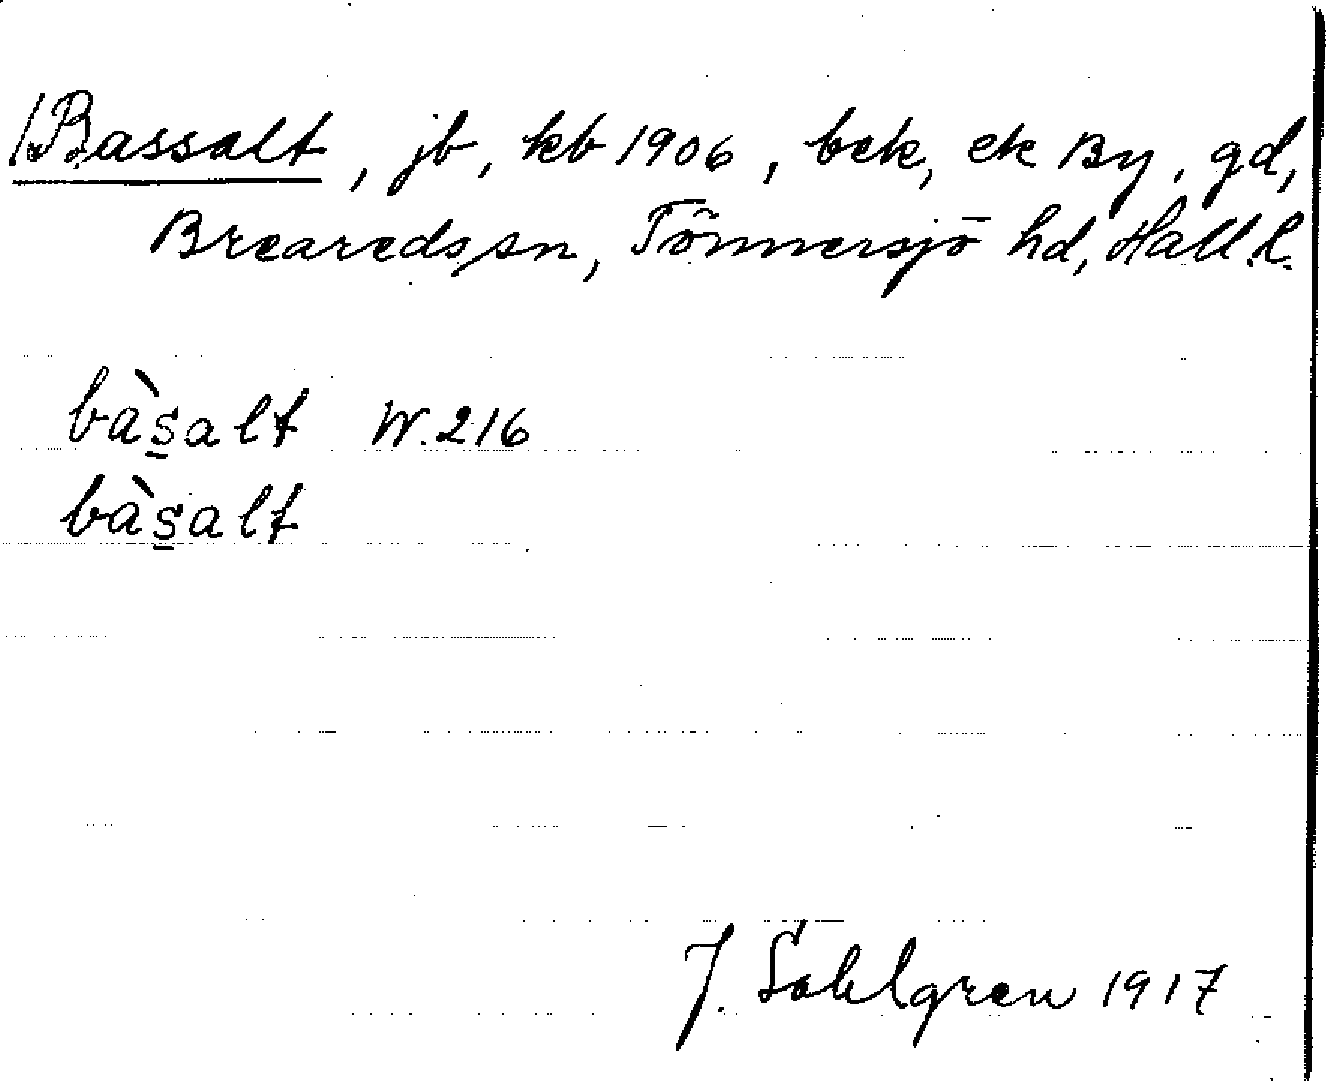 /Bassalt, jb, kb 1906, bek, ek By, gd,
Breareds sn, Tönnersjö hd, Hall. l.
bàs̲alt W. 216
bàs̲alt
J. Sahlgren 1917